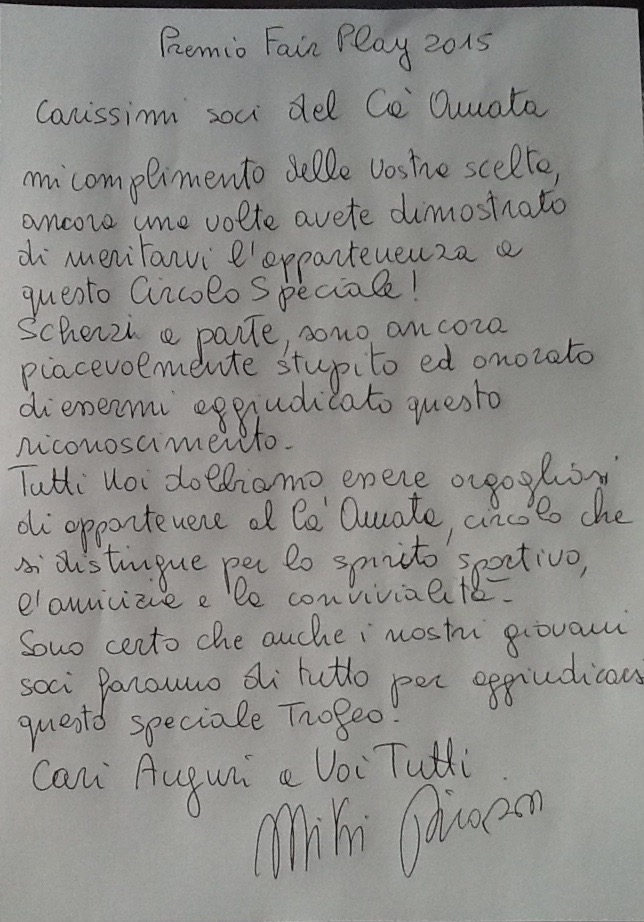 Premio Fair Play 2015
Carissimi soci del Ca' Amata
mi complimento della vostra scelta,
ancora una volta avete dimostrato
di meritarvi l'appartenenza a
questo Circolo Speciale!
Scherzi a parte, sono ancora
piacevolmente stupito ed onorato
di essermi aggiudicato questo
riconoscimento.
Tutti Noi dobbiamo essere orgogliosi
di appartenere al Ca' Amata, circolo che
si distingue per lo spirito sportivo,
l'amicizia e la convivialità.
Sono certo che anche i nostri giovani
soci faranno di tutto per aggiudicarsi
questo speciale Trofeo.
Cari Auguri a Voi Tutti